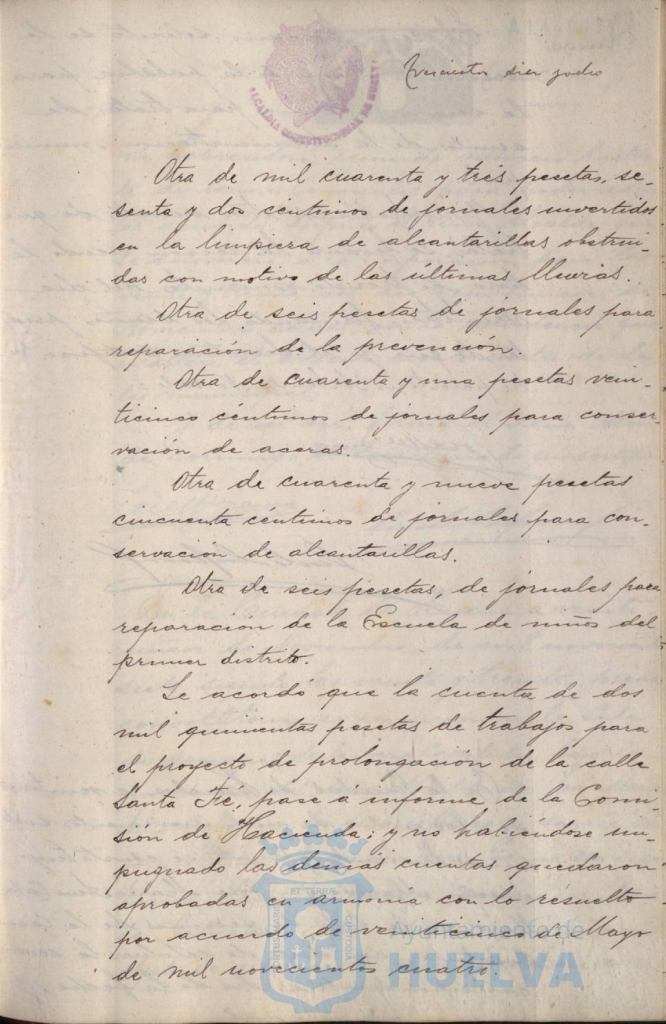 Trescientos diez y ocho
ALCALDIA CONSTITUCIONAL DE HUELVA
Otra de mil cuarenta y tres pesetas, se-
senta y dos céntimos de jornales invertidos
en la limpieza de alcantarillas obstrui-
das con motivo de las últimas lluvias.
Otra de seis pesetas de jornales para
reparación de la prevención.
Otra de cuarenta y una pesetas vein-
ticinco céntimos de jornales para conser-
vación de aceras.
Otra de cuarenta y nueve pesetas
cincuenta céntimos de jornales para con-
servación de alcantarillas.
Otra de seis pesetas, de jornales para
reparación de la Escuela de niños del
primer distrito.
Se acordó que la cuenta de dos
mil quinientas pesetas de trabajos para
el proyecto de prolongación de la calle
Santa Fé, pase á informe de la Comi-
sión de Hacienda; y no habiéndose im-
pugnado las demás cuentas quedaron
aprobadas en armonía con lo resuelto
por acuerdo de veinticinco de Mayo
de mil novecientos cuatro.
PORTUS MARIS ET TERRAE CUSTODIA
Ayuntamiento de
HUELVA